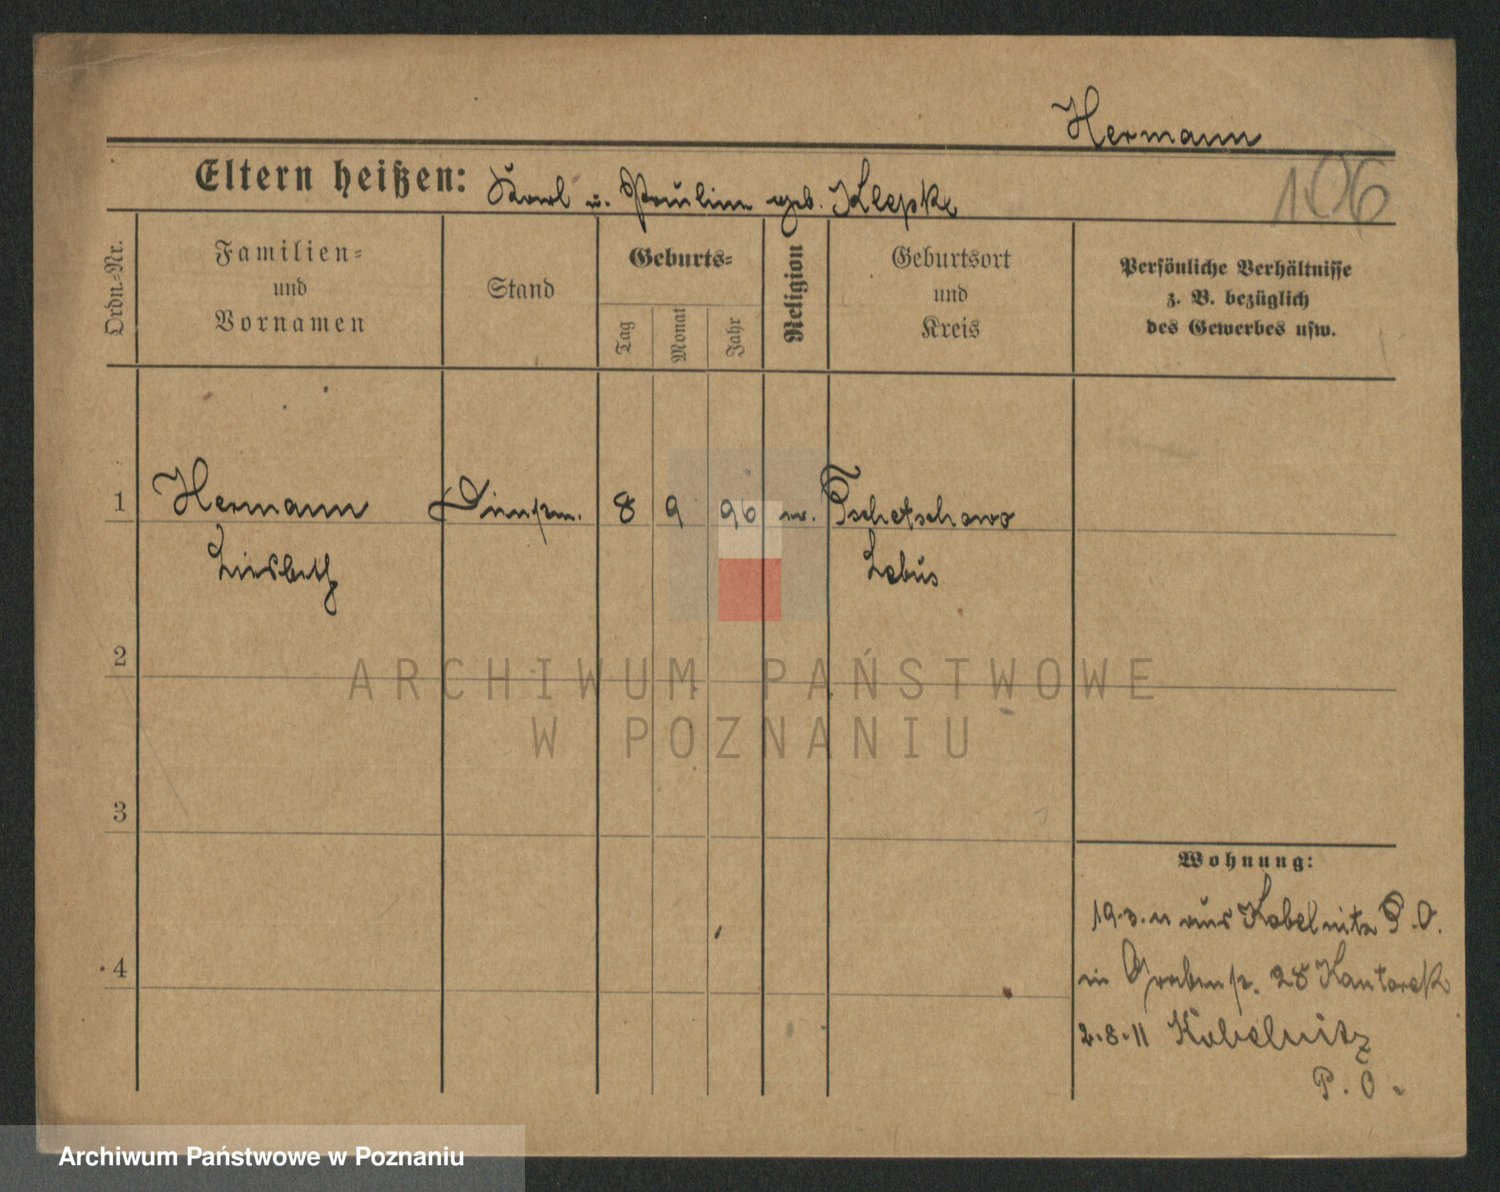 Hermann
106
Eltern heißen: Karl u. Pauline geb. Klepke
Ordn.-Nr.
Familien-
und
Vornamen
Stand
Geburts-
Tag
Monat
Jahr
Religion
Geburtsort
und
Kreis
Persönliche Verhältnisse
z. B. bezüglich
des Gewerbes usw.
1 Hermann Dienstm. 8 9 96 Tschetschnow
Liesbeth Lebus
2
3
4
Wohnung:
19.3.11 aus Kobelnitz P.O.
in Grabenstr. 28 Kantorek
2.8.11 Kobelnitz
P.O.
ARCHIWUM PAŃSTWOWE
W POZNANIU
Archiwum Państwowe w Poznaniu